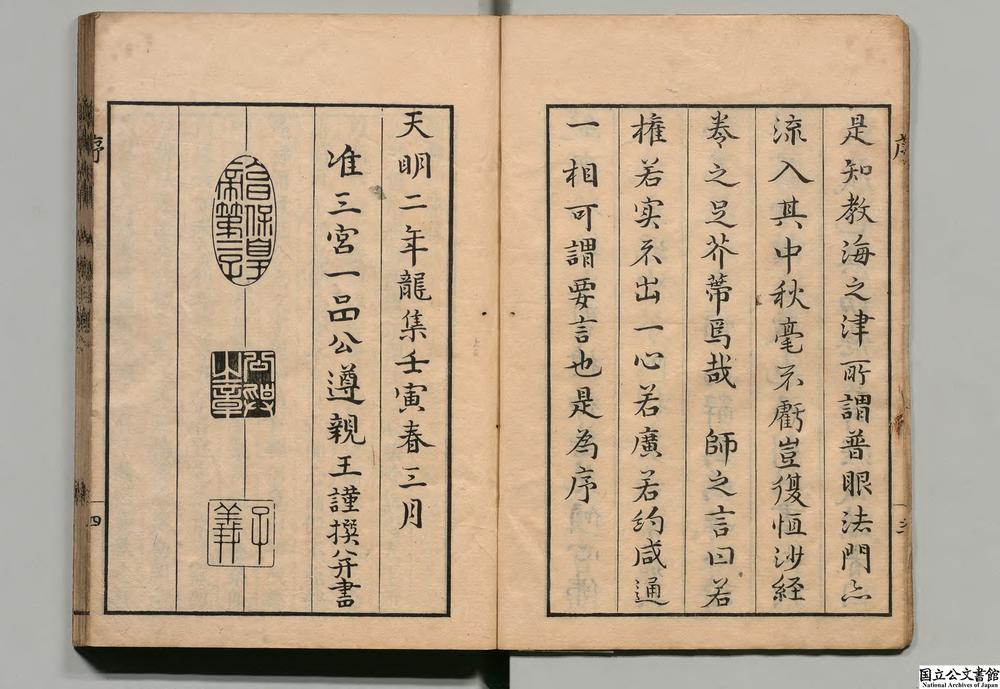 序
是知教海之津所謂普眼法門亦
流入其中秋毫不虧豈復恒沙経
巻之足芥蔕焉哉 師之言曰若
権若実不出一心若廣若約咸通
一相可謂要言也是為序
天明二年龍集壬寅春三月
准三宮一品公遵親王謹撰并書
公遵
之章
子
義
序
四
国立公文書館
National Archives of Japan